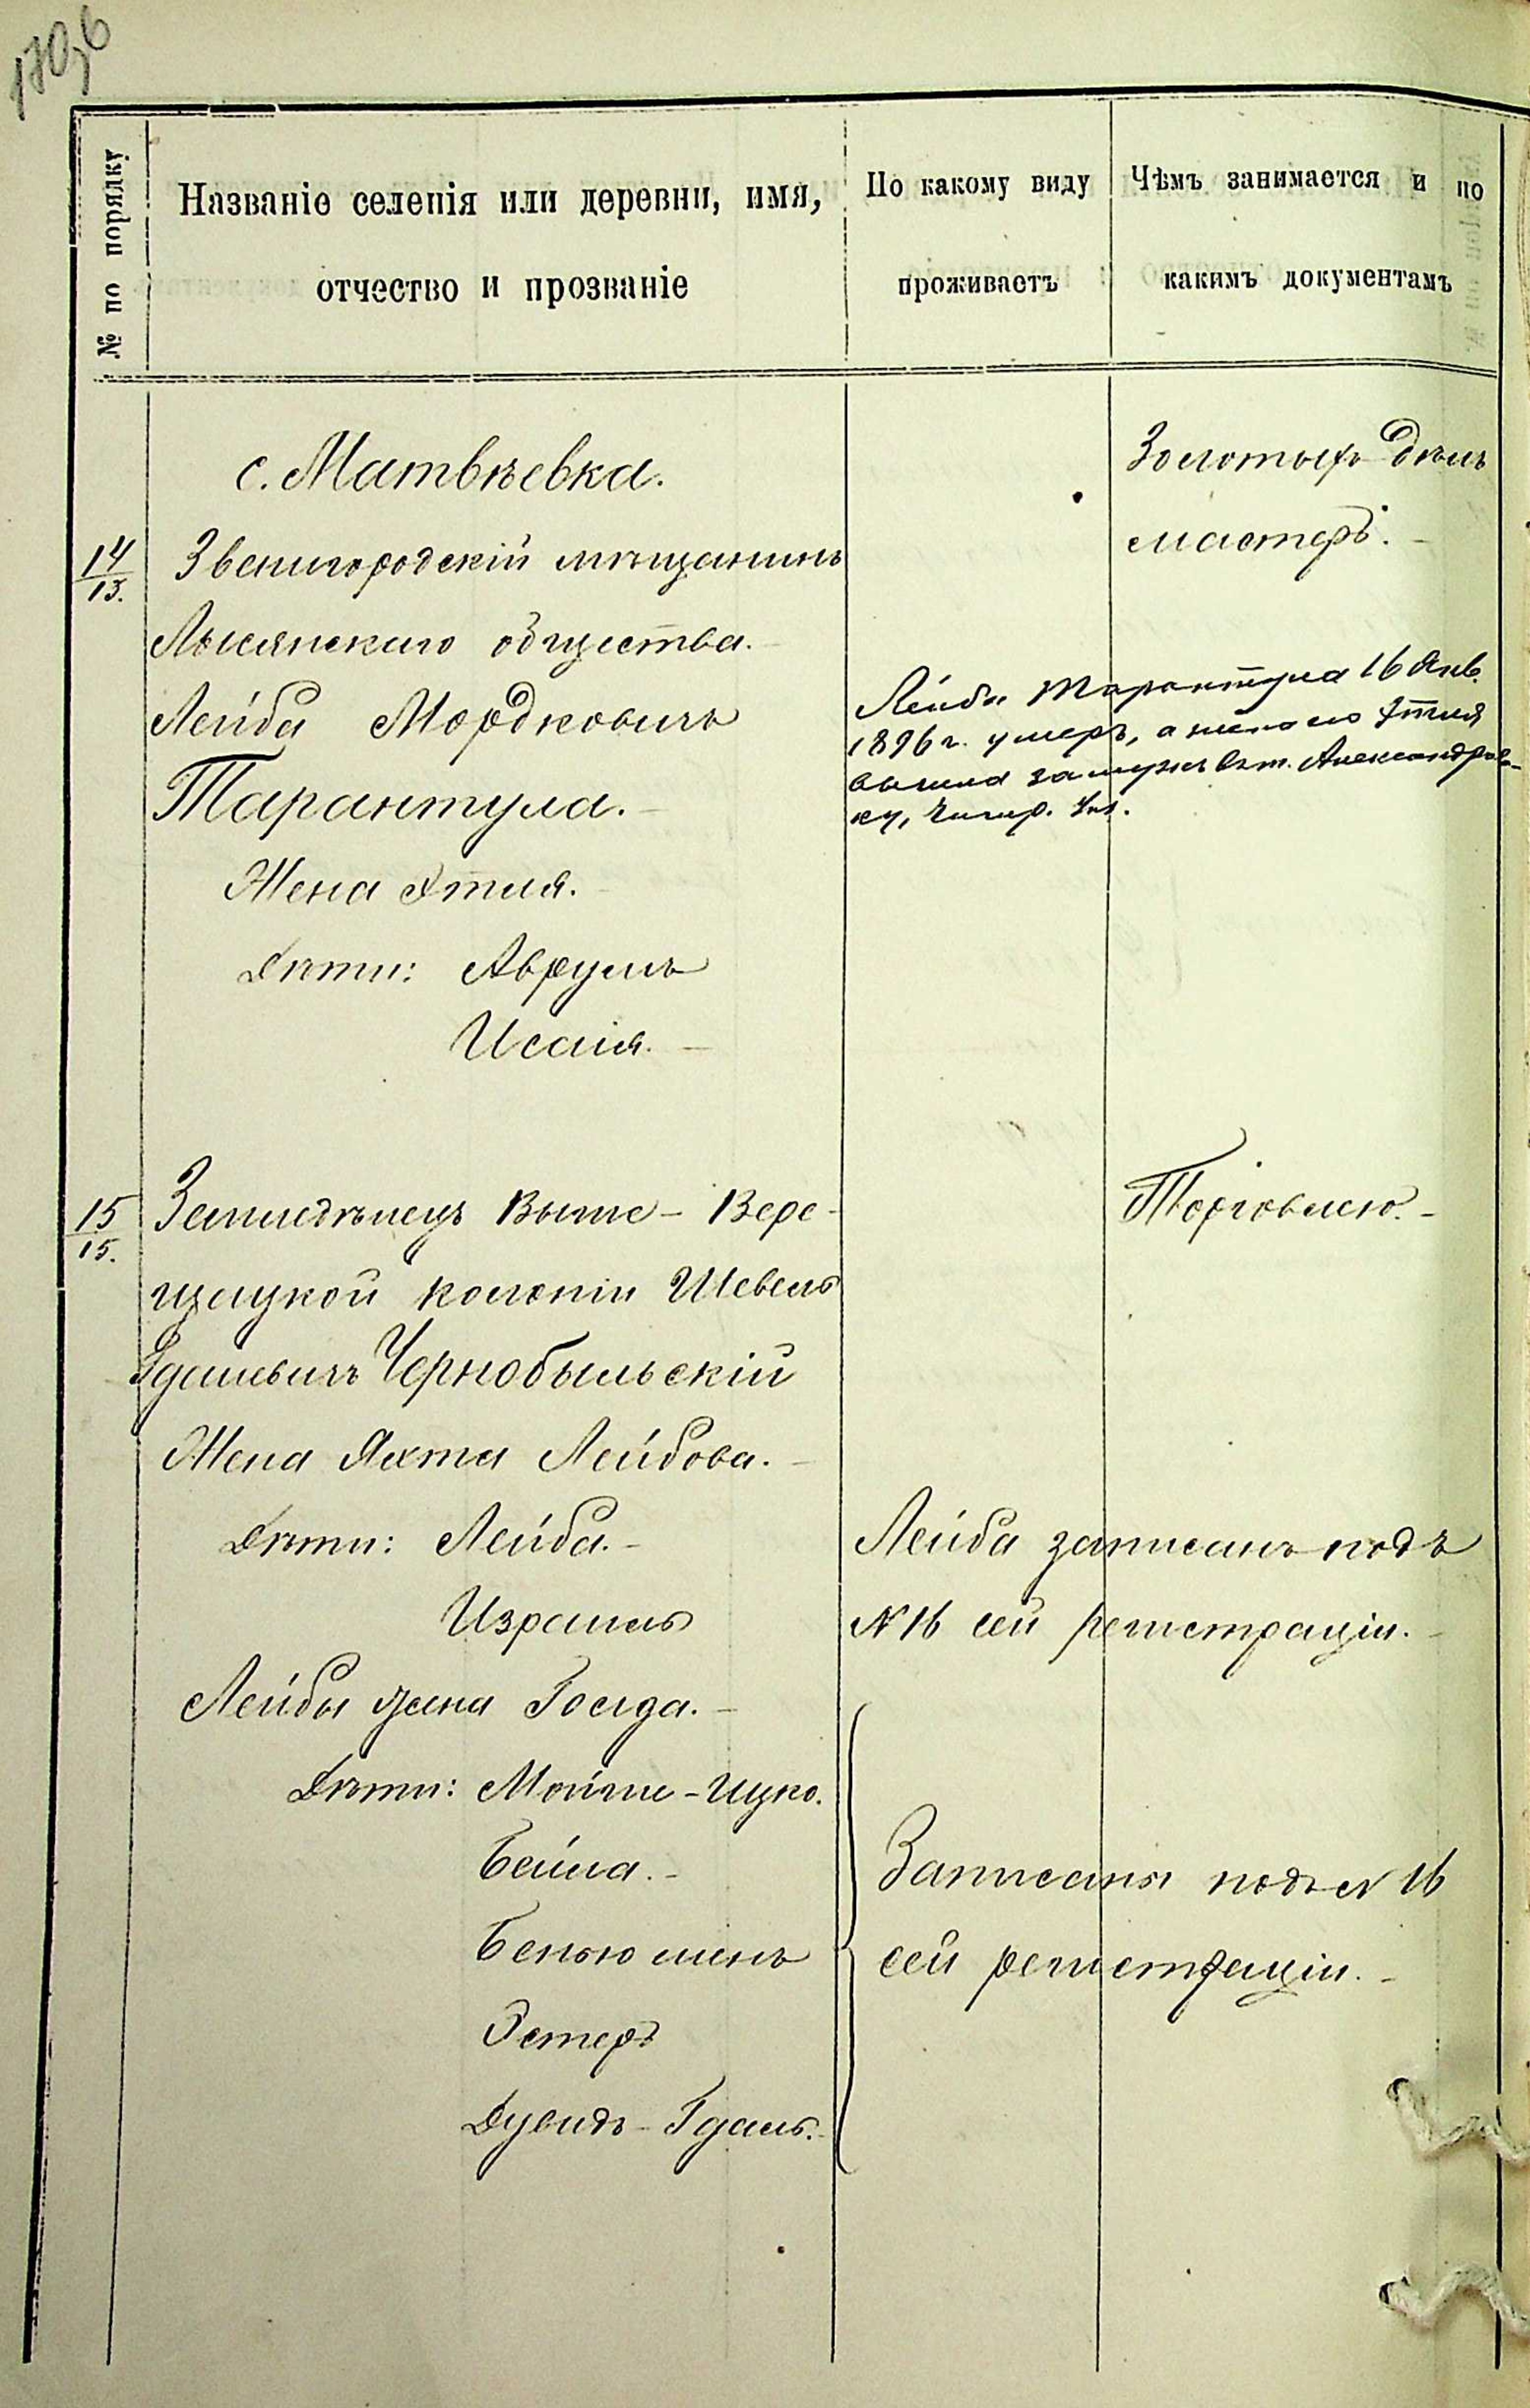 170,б
№ по порядку
Названіе селенія или деревни, имя,
отчество и прозваніе
По какому виду
проживаетъ
Чѣмъ занимается и по
какимъ документамъ
с. Матвѣевка.
Золотыхъ дѣлъ
мастеръ. -
14/13.
Звенигородскій мѣщанинъ
Лысянскаго общества. -
Лейба Мордковичъ
Тарантула. -
Жена Этля. -
Дѣти: Аврумъ
Исаія. -
Лейба Тарантула 16 Янв.
1896 г. умеръ, а жена его Этля
вышла замужъ въ м. Александров-
ку, Чигир. уѣз.
15/15.
Земледѣлецъ Выше-Вере-
щацкой колоніи Шевель
Гдалевичъ Чернобыльскій
Жена Яхта Лейбова. -
Дѣти: Лейба. -
Израиль
Торговлею. -
Лейба записанъ подъ
№ 16 сей регистраціи. -
Лейбы жена Гольда. -
Дѣти: Мойше-Ицко.
Бейла. -
Беньюминъ
Эстеръ
Дувидъ-Гдаль. -
Записаны подъ № 16
сей регистраціи. -